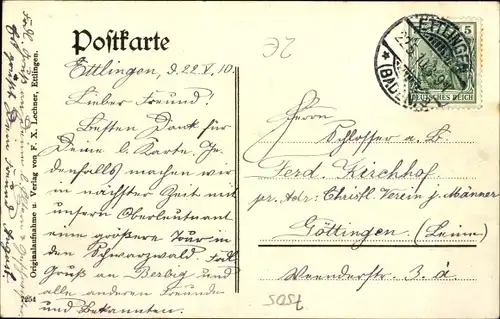 Postkarte
Ettlingen, d. 22.V.10.
Lieber Freund!
Besten Dank für
Deine l. Karte. Je-
denfalls machen wir
in nächster Zeit mit
unserm Oberleutnant
eine größere Tour in
den Schwarzwald.
Gruß an Berbig und
alle anderen Freunde
und Bekannten.
Originalaufnahme u. Verlag von F. X. Lechner, Ettlingen.
7254
ETTLINGEN
(BADEN)
5
DEUTSCHES REICH
Herrn
Schlosser a. B.
Ferd. Kirchhof
pr. Adr: Christl. Verein j. Männer
Göttingen. (Leine)
Weenderstr. 3. a.